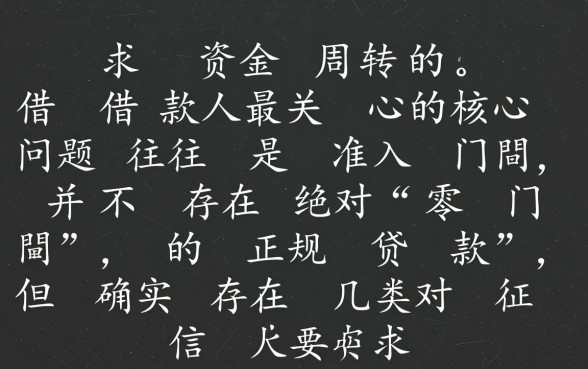 求 资金 周转的。
借 借 款人最关 心的核心
问题 往往 是 准入 门間,
并不 存在 绝对“零 门
閫”, 的 正规 贷 款”,
但 确实 存在 几类对 征
信 要求